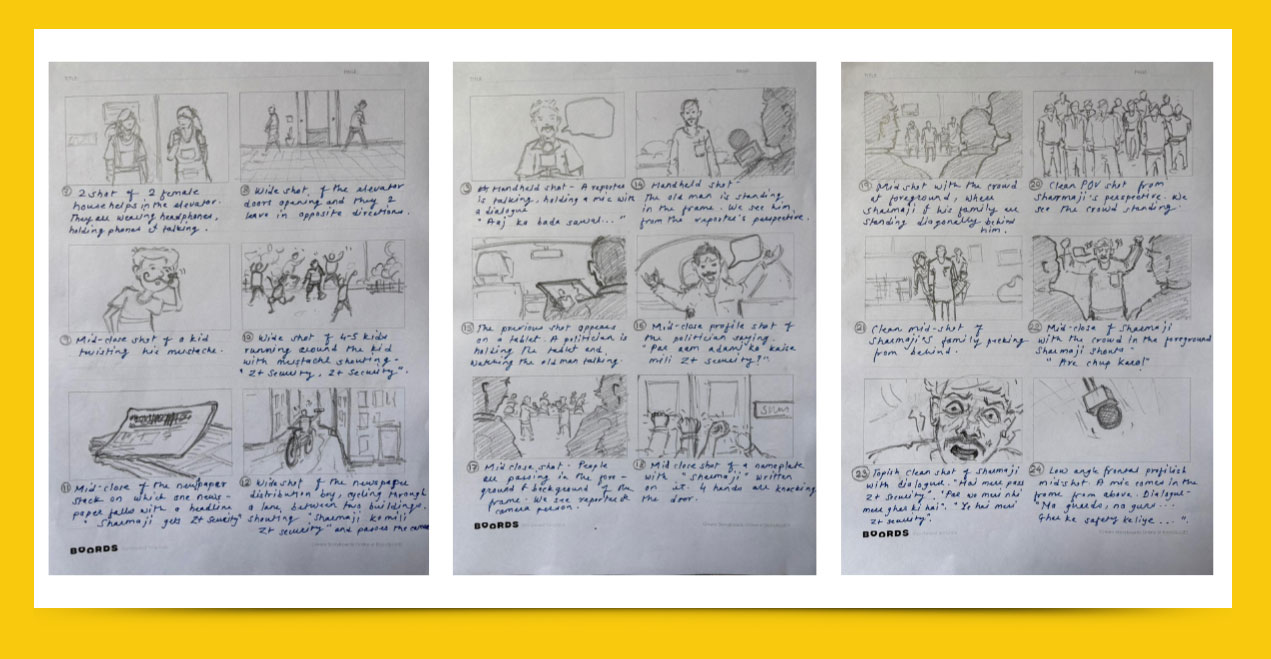 TITLE
PAGE
⑦ 2 shot of 2 female
house helps in the elevator.
They are wearing headphones,
holding phones & talking.
⑧ Wide shot of the elevator
doors opening and they 2
leave in opposite directions.
⑨ Mid-close shot of a kid
twisting his mustache.
⑩ Wide shot of 4-5 kids
running around the kid
with mustache shouting -
"Z+ Security, Z+ Security".
⑪ Mid-close of the newspaper
stack on which one news-
paper falls with a headline
"Sharmaji gets Z+ Security"
⑫ Wide shot of the newspaper
distribution boy, cycling through
a lane, between two buildings,
shouting "Sharmaji ko mili
Z+ security" and passes the
BOORDS
TITLE
PAGE
Handheld shot - A reporter
is talking, holding a mic with
a dialogue
"Aaj ka bada sawal..."
⑭ Handheld shot -
The old man is standing
in the frame. We see him,
from the reporter's perspective.
⑮ The previous shot appears
on a tablet. A politician is
holding the tablet and
watching the old man talking.
⑯ Mid-close profile shot of
the politician saying.
"Par aam adami ko kaise
mili Z+ security?"
⑰ Mid close shot - People
are passing in the fore-
ground & background of the
frame. We see reporter &
camera person.
SHARMA
⑱ Mid close shot of a nameplate
with "Sharmaji" written
on it. 4 hands are knocking
the door.
BOORDS
TITLE
PAGE
⑲ Mid shot with the crowd
at foreground, where
Sharmaji & his family are
standing diagonally behind
him.
⑳ Clean POV shot from
Sharmaji's perspective. We
see the crowd standing.
㉑ Clean mid-shot of
Sharmaji's family peeking
from behind.
㉒ Mid-close of Sharmaji
with the crowd in the foreground
Sharmaji shouts -
"Are chup karo!"
㉓ Topish clean shot of Sharmaji
with dialogue. "Hai mere paas
Z+ Security". "Par wo meri nhi
mere ghar ki hai". "Ye hai meri
Z+ security".
㉔ Low angle frontal profilish
midshot. A mic comes in the
frame from above. Dialogue-
"No guards, no guns...
Ghar ke safety ke liye...".
BOORDS